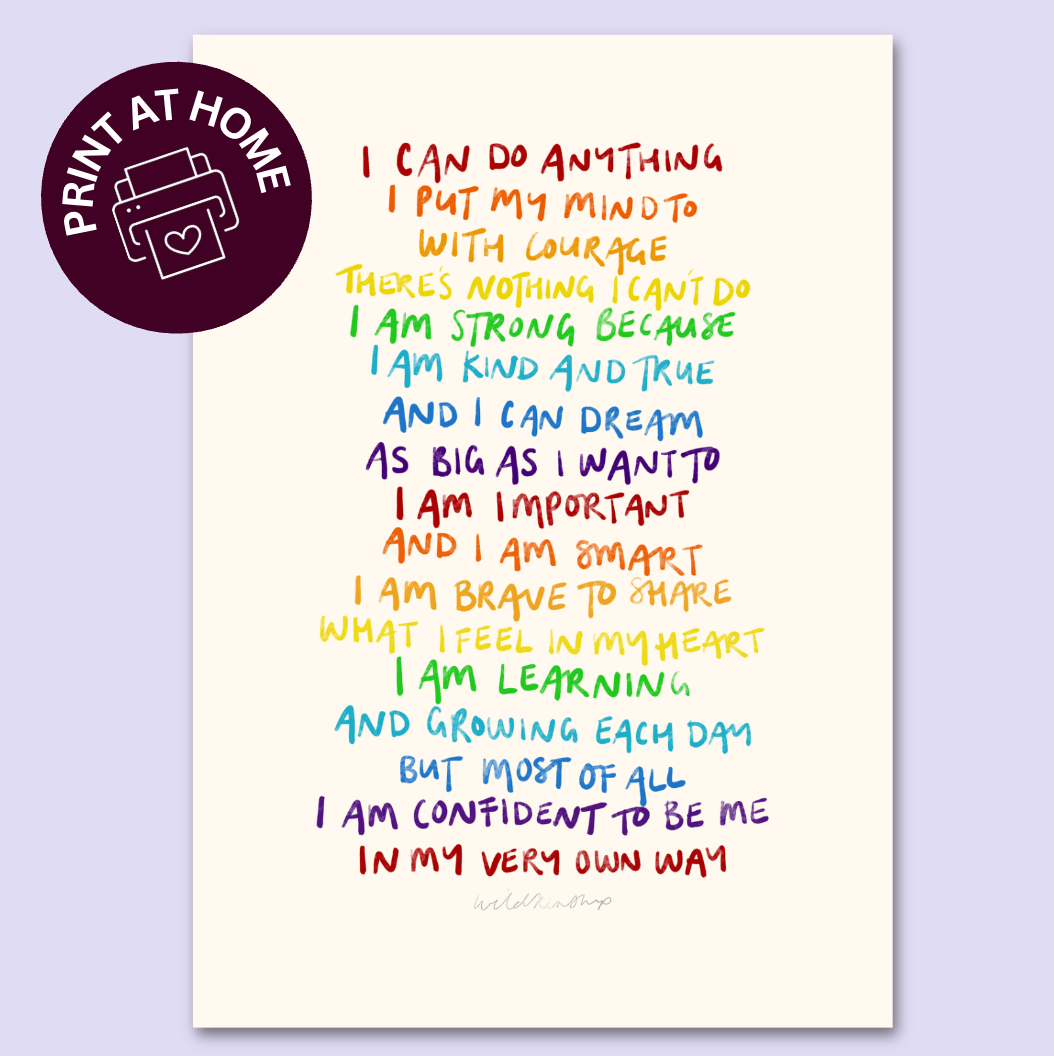 PRINT AT HOME
I CAN DO ANYTHING
I PUT MY MIND TO
WITH COURAGE
THERE'S NOTHING I CAN'T DO
I AM STRONG BECAUSE
I AM KIND AND TRUE
AND I CAN DREAM
AS BIG AS I WANT TO
I AM IMPORTANT
AND I AM SMART
I AM BRAVE TO SHARE
WHAT I FEEL IN MY HEART
I AM LEARNING
AND GROWING EACH DAY
BUT MOST OF ALL
I AM CONFIDENT TO BE ME
IN MY VERY OWN WAY
wildkinship